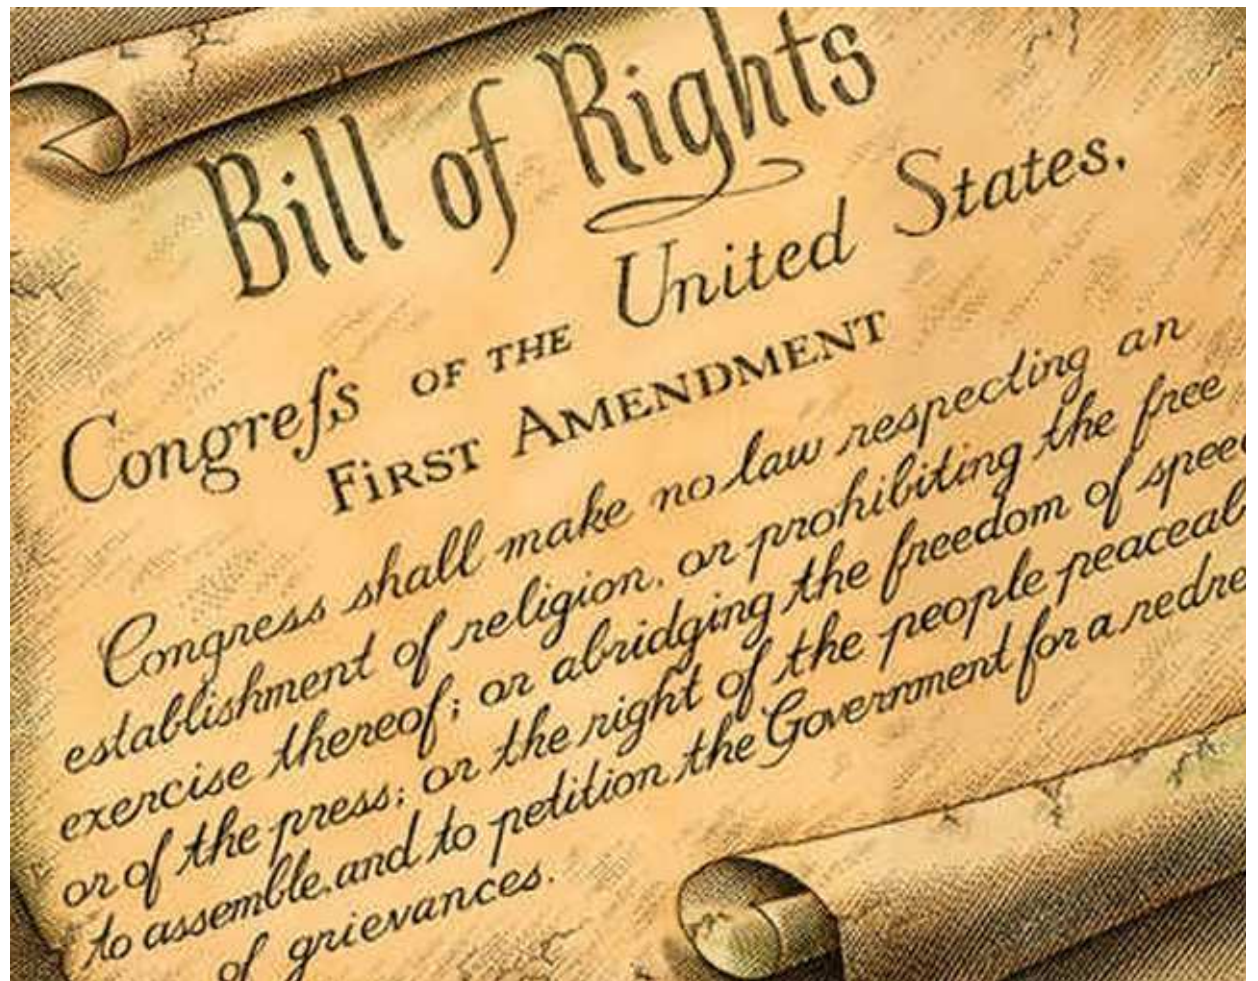 Bill of Rights
Congreſs OF THE United States,
FIRST AMENDMENT
Congress shall make no law respecting an
establishment of religion, or prohibiting the free
exercise thereof; or abridging the freedom of speec
or of the press; or the right of the people peaceab
to assemble, and to petition the Government for a redre
of grievances.